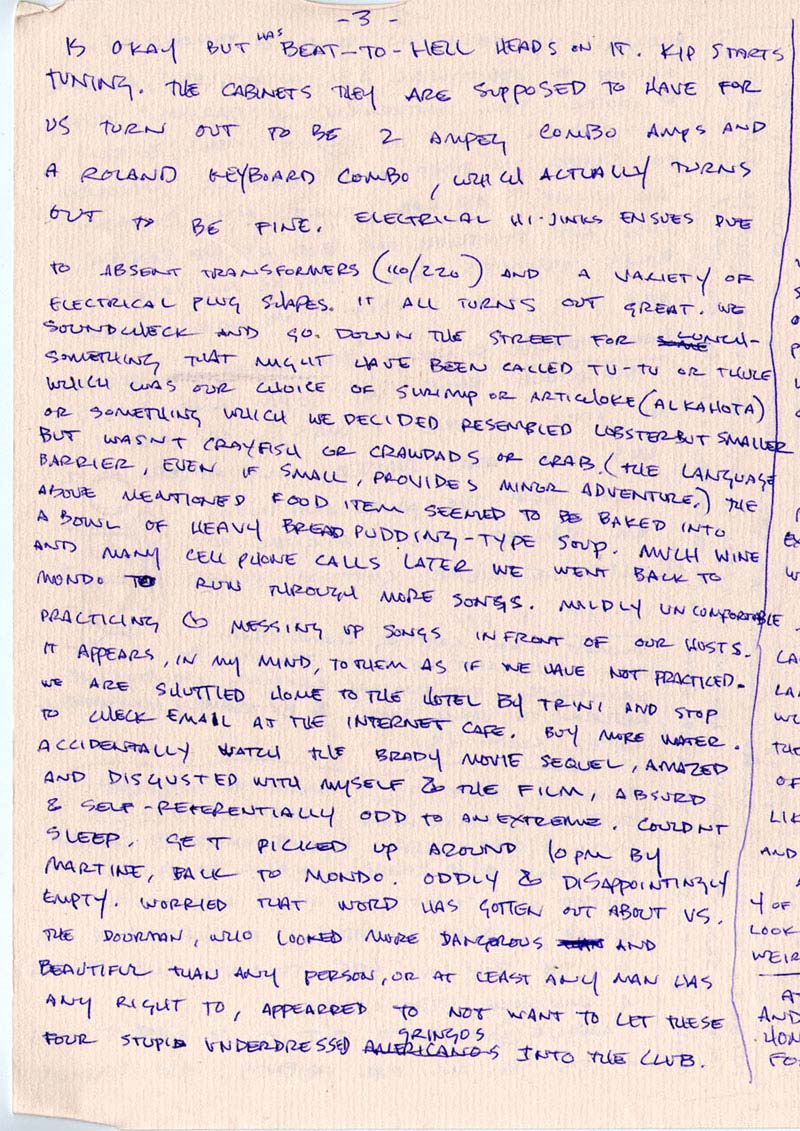 -3-
IS OKAY BUT HAS BEAT-TO-HELL HEADS ON IT. KIP STARTS
TUNING. THE CABINETS THEY ARE SUPPOSED TO HAVE FOR
US TURN OUT TO BE 2 AMPEG COMBO AMPS AND
A ROLAND KEYBOARD COMBO, WHICH ACTUALLY TURNS
OUT TO BE FINE. ELECTRICAL HI-JINKS ENSUES DUE
TO ABSENT TRANSFORMERS (110/220) AND A VARIETY OF
ELECTRICAL PLUG SHAPES. IT ALL TURNS OUT GREAT. WE
SOUNDCHECK AND GO DOWN THE STREET FOR LUNCH-
SOMETHING THAT MIGHT HAVE BEEN CALLED TU-TU OR THULE
WHICH WAS OUR CHOICE OF SHRIMP OR ARTICHOKE (ALKAHOTA)
OR SOMETHING WHICH WE DECIDED RESEMBLED LOBSTER BUT SMALLER
BUT WASN'T CRAYFISH OR CRAWDADS OR CRAB. (THE LANGUAGE
BARRIER, EVEN IF SMALL, PROVIDES MINOR ADVENTURE.) THE
ABOVE MENTIONED FOOD ITEM SEEMED TO BE BAKED INTO
A BOWL OF HEAVY BREAD PUDDING-TYPE SOUP. MUCH WINE
AND MANY CELL PHONE CALLS LATER WE WENT BACK TO
MONDO TO RUN THROUGH MORE SONGS. MILDLY UNCOMFORTABLE
PRACTICING & MESSING UP SONGS IN FRONT OF OUR HOSTS.
IT APPEARS, IN MY MIND, TO THEM AS IF WE HAVE NOT PRACTICED.
WE ARE SHUTTLED HOME TO THE HOTEL BY TRINI AND STOP
TO CHECK EMAIL AT THE INTERNET CAFE. BUY MORE WATER.
ACCIDENTALLY WATCH THE BRADY MOVIE SEQUEL, AMAZED
AND DISGUSTED WITH MYSELF & THE FILM, ABSURD
& SELF-REFERENTIALLY ODD TO AN EXTREME. COULDNT
SLEEP. GET PICKED UP AROUND 10PM BY
MARTINE, BACK TO MONDO. ODDLY & DISAPPOINTINGLY
EMPTY. WORRIED THAT WORD HAS GOTTEN OUT ABOUT US.
THE DOORMAN, WHO LOOKED MORE DANGEROUS AND
BEAUTIFUL THAN ANY PERSON, OR AT LEAST ANY MAN HAS
ANY RIGHT TO, APPEARRED TO NOT WANT TO LET THESE
FOUR STUPID UNDERDRESSED AMERICANOS GRINGOS INTO THE CLUB.
LA
LA
THE
OF
LIK
AND
4 OF
LOOK
WEIR
AT
AND
HON
FO